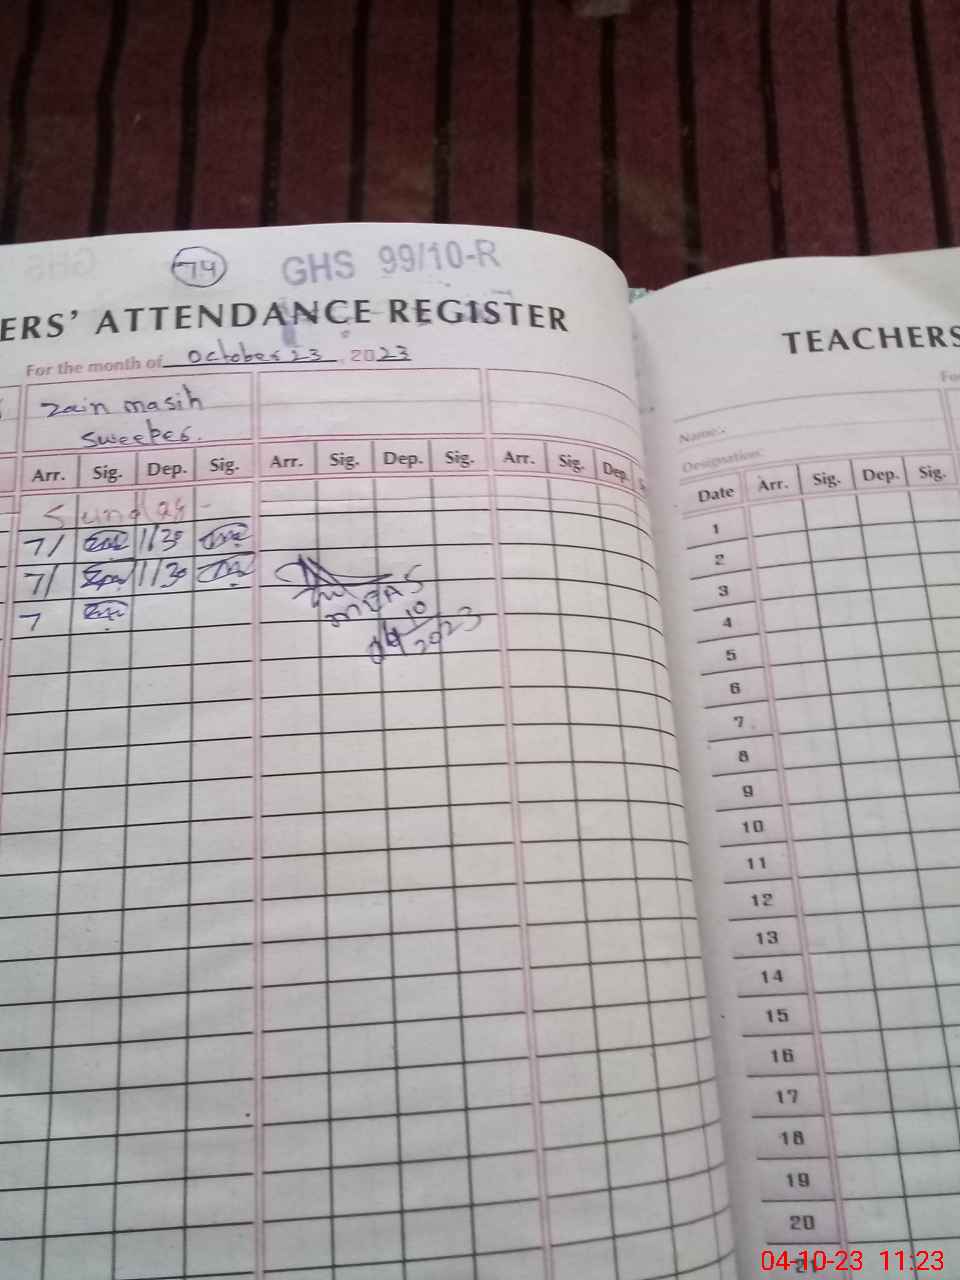 74 GHS 99/10-R
ERS' ATTENDANCE REGISTER
For the month of October 23, 2023
Zain masih
Sweeper.
Arr. Sig. Dep. Sig. Arr. Sig. Dep. Sig. Arr. Sig. Dep.
Sunday -
7/ 1/30
7/ 1/30
7
MEAS
04/10
2023
TEACHERS
Name:
Designation:
Date Arr. Sig. Dep. Sig.
1
2
3
4
5
6
7
8
9
10
11
12
13
14
15
16
17
18
19
20
21
04-10-23 11:23